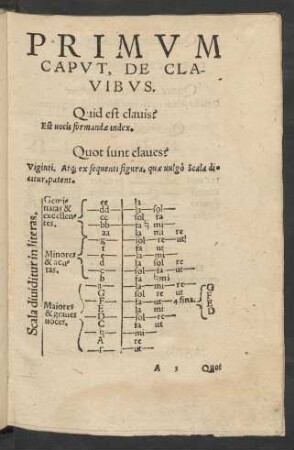 PRIMVM
CAPVT, DE CLA-
VIBVS.
Quid est clauis?
Est uocis formandæ index.
Quot sunt claues?
Viginti. Atq; ex sequenti figura, quæ uulgò Scala di-
citur, patent.
Scala diuiditur in literas.
Gemi-
natas & 
excellen-
tes.
Minores
& acu-
tas.
Maiores
& graues
uoces.
ee la
dd la sol
cc sol fa
bb fa ♮ mi
aa la mi re
g sol re ut
f fa ut
e la mi
d la sol re
c sol fa ut
b fa ♮ mi
a la mi re
G sol re ut
F fa ut
E la mi
D sol re
C fa ut
♮ mi
A re
Γ ut
4 fina.
G
F
E
D
A 3 Quot